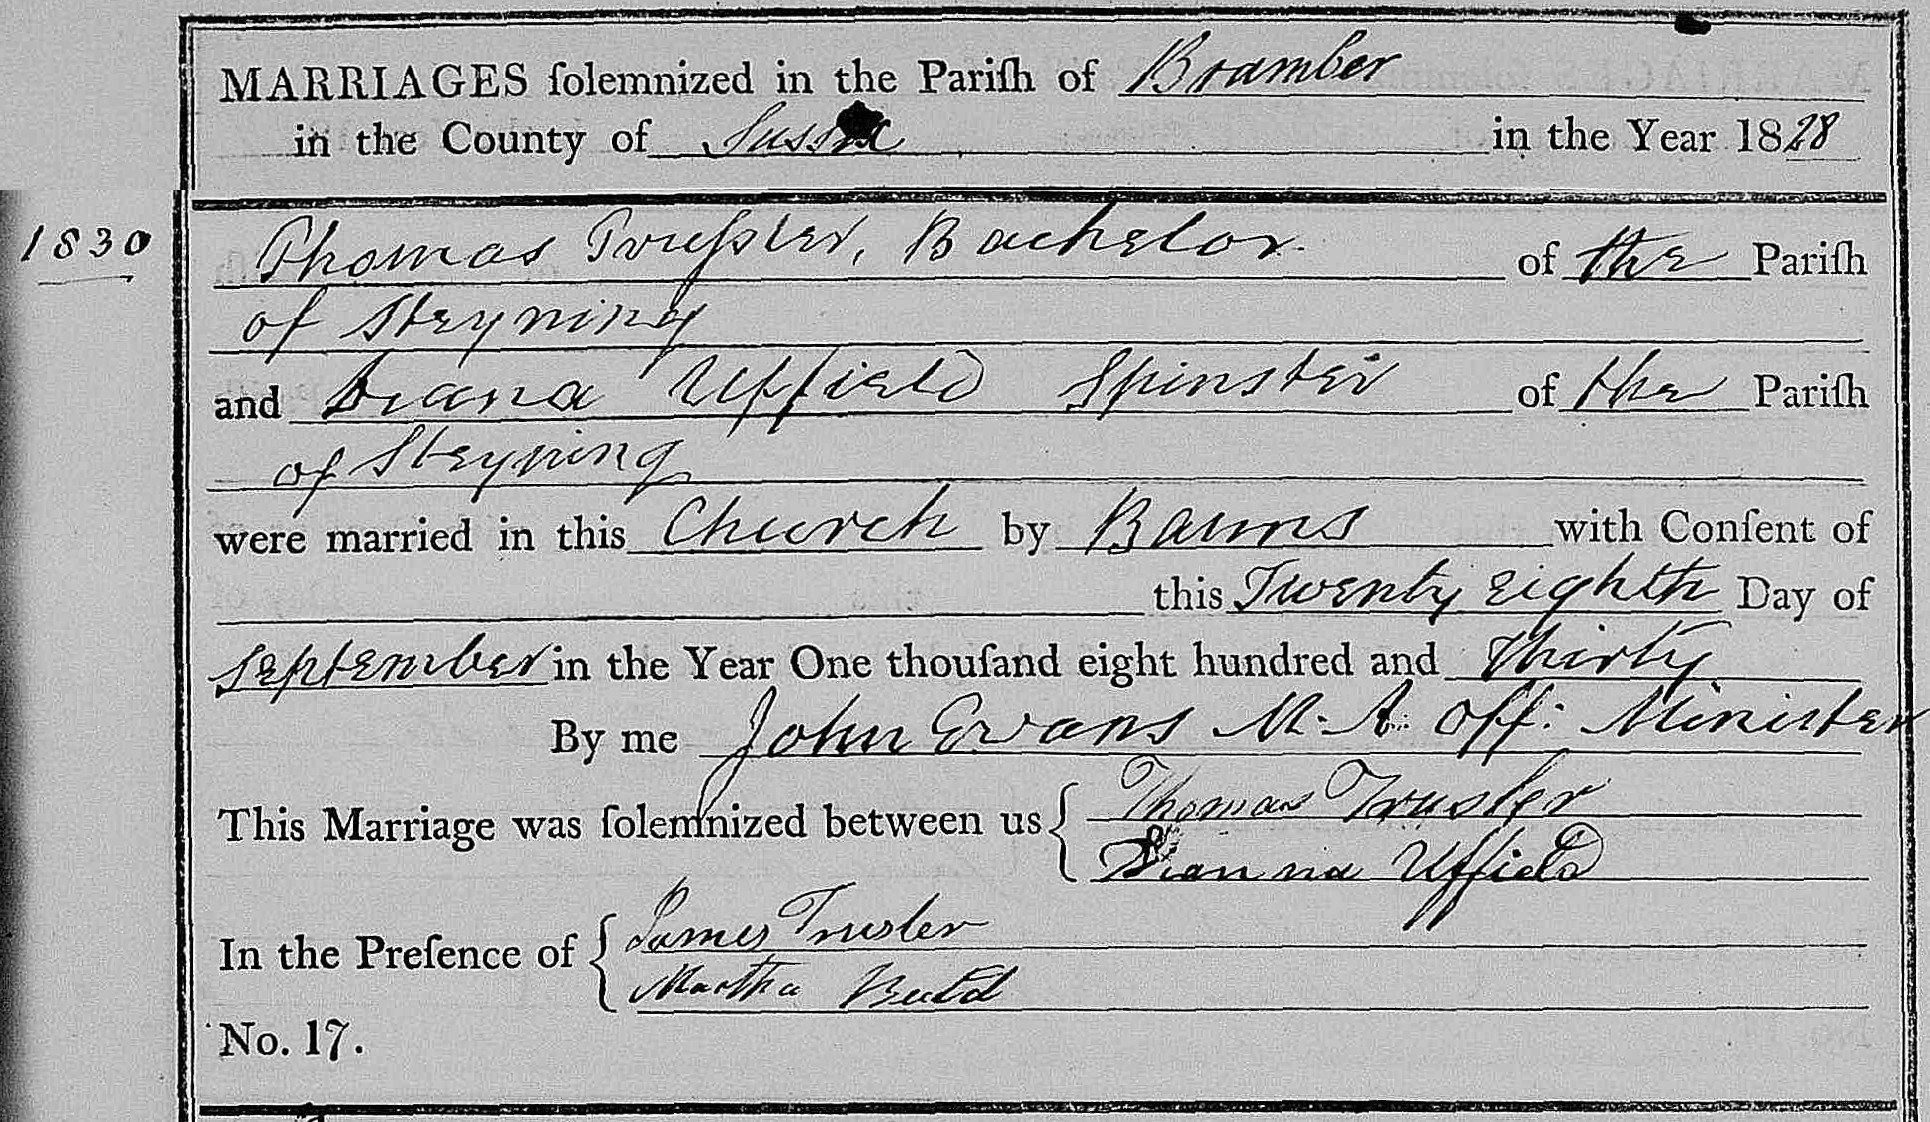 MARRIAGES ſolemnized in the Pariſh of Bramber
in the County of Sussex in the Year 1828
1830
Thomas Truſsler, Bachelor. of the Pariſh
of Steyning
and Diana Upfield Spinster of the Pariſh
of Steyning
were married in this Church by Banns with Conſent of
this Twenty eighth Day of
September in the Year One thouſand eight hundred and Thirty
By me John Evans M.A. Off: Minister
This Marriage was ſolemnized between us { Thomas Trusler
Dianna Uffield
In the Preſence of { James Trusler
Martha Budd
No. 17.